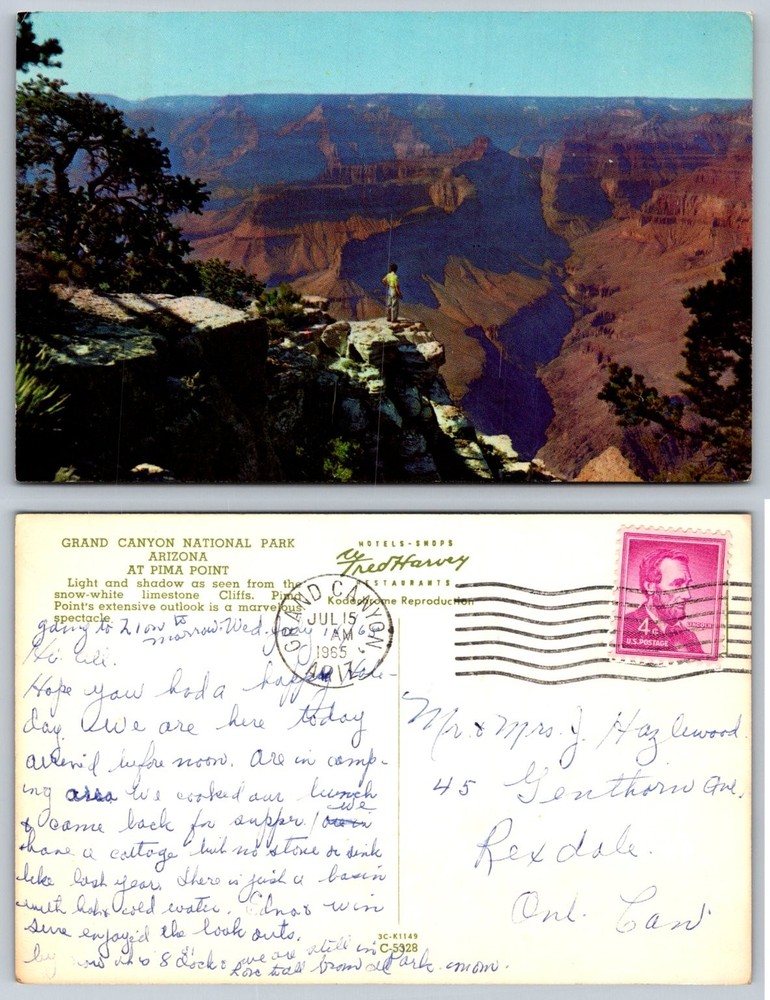 GRAND CANYON NATIONAL PARK
ARIZONA
AT PIMA POINT
Light and shadow as seen from the
snow-white limestone Cliffs. Pima
Point's extensive outlook is a marvelous
spectacle.
HOTELS-SHOPS
Fred Harvey
RESTAURANTS
Kodachrome Reproduction
GRAND CANYON
JUL 15
AM
1965
ARIZ.
4¢
LINCOLN
U.S. POSTAGE
going to Zion to
morrow. Wed. July
Hi all.
Hope you had a happy Hole-
day. We are here today
before noon. are in camp-
ing area We cooked our lunch
& came back for supper. we
have a cottage but no stove or sink
like last year. There is just a basin
with hot & cold water. Edna & win
sure enjoyed the look outs.
by now its 8 o'clock & we are still in
Park. mom.
Mr. & Mrs. J. Hazlewood.
45 Genthorn Ave.
Rexdale.
Ont. Can
3C-K1149
C-5328